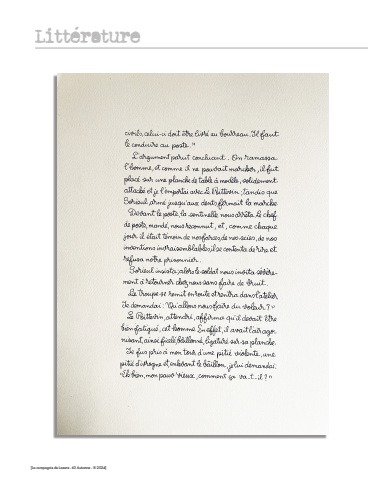 Littérature
civils, celui-ci doit être livré au bourreau. Il faut
le conduire au poste."
L'argument parut concluant. On ramassa
l'homme, et comme il ne pouvait marcher, il fut
placé sur une planche de table à modèle, solidement
attaché et je l'emportai avec Le Poittevin; tandis que
Sorieul, armé jusqu'aux dents, fermait la marche.
Devant le poste, la sentinelle nous arrêta. Le chef
de poste, mandé, nous reconnut, et, comme chaque
jour il était témoin de nos farces, de nos scies, de nos
inventions invraisemblables, il se contenta de rire et
refusa notre prisonnier.
Sorieul insista; alors le soldat nous invita sévère-
ment à retourner chez nous sans faire de bruit.
La troupe se remit en route et rentra dans l'atelier.
Je demandai: "Qu'allons nous faire du voleur?"
Le Poittevin, attendri, affirma qu'il devait être
bien fatigué, cet homme. En effet, il avait l'air ago-
nisant, ainsi ficelé, bâillonné, ligaturé sur sa planche.
Je fus pris à mon tour d'une pitié violente, une
pitié d'ivrogne et enlevant le bâillon, je lui demandai:
"Eh bien, mon pauv'vieux, comment ça va-t-il?"